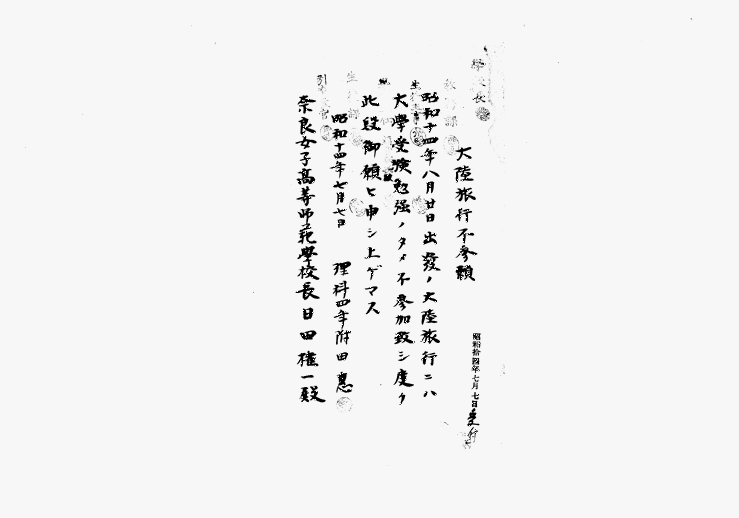 大陸旅行不参願
昭和十四年八月廿日出發ノ大陸旅行ニハ
大學受験勉强ノタメ不参加致シ度ク
此段御願ヒ申シ上ゲマス
昭和十四年七月七日
理科四年附田惠
奈良女子高等師範學校長日田權一殿
昭和拾四年七月七日受付